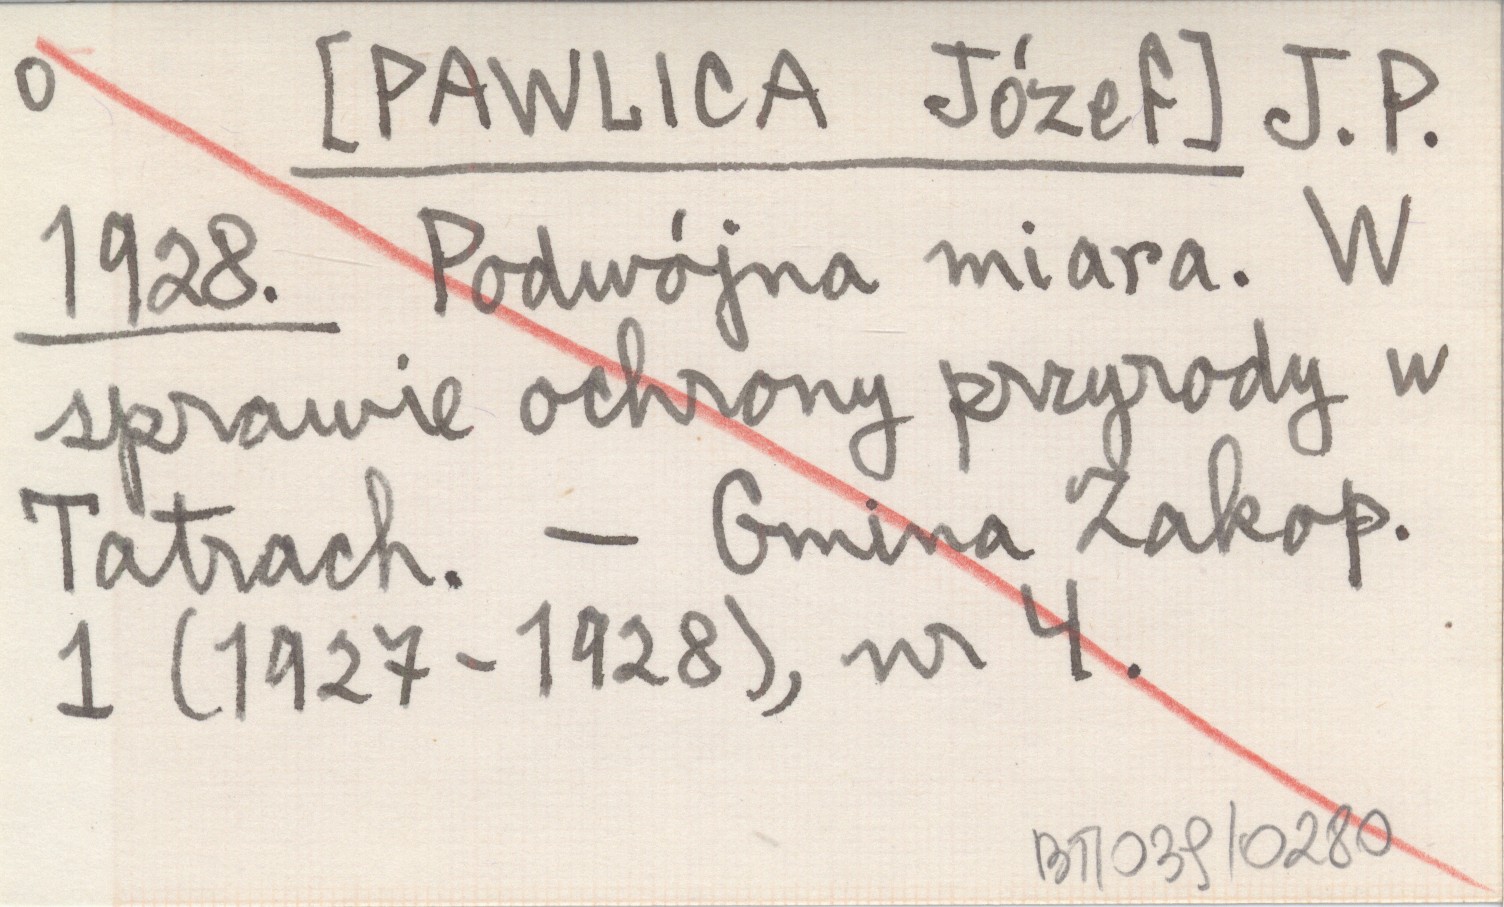 o [PAWLICA Józef] J.P.
1928. Podwójna miara. W
sprawie ochrony przyrody w
Tatrach. — Gmina Zakop.
1 (1927-1928), nr 4.
039/0280